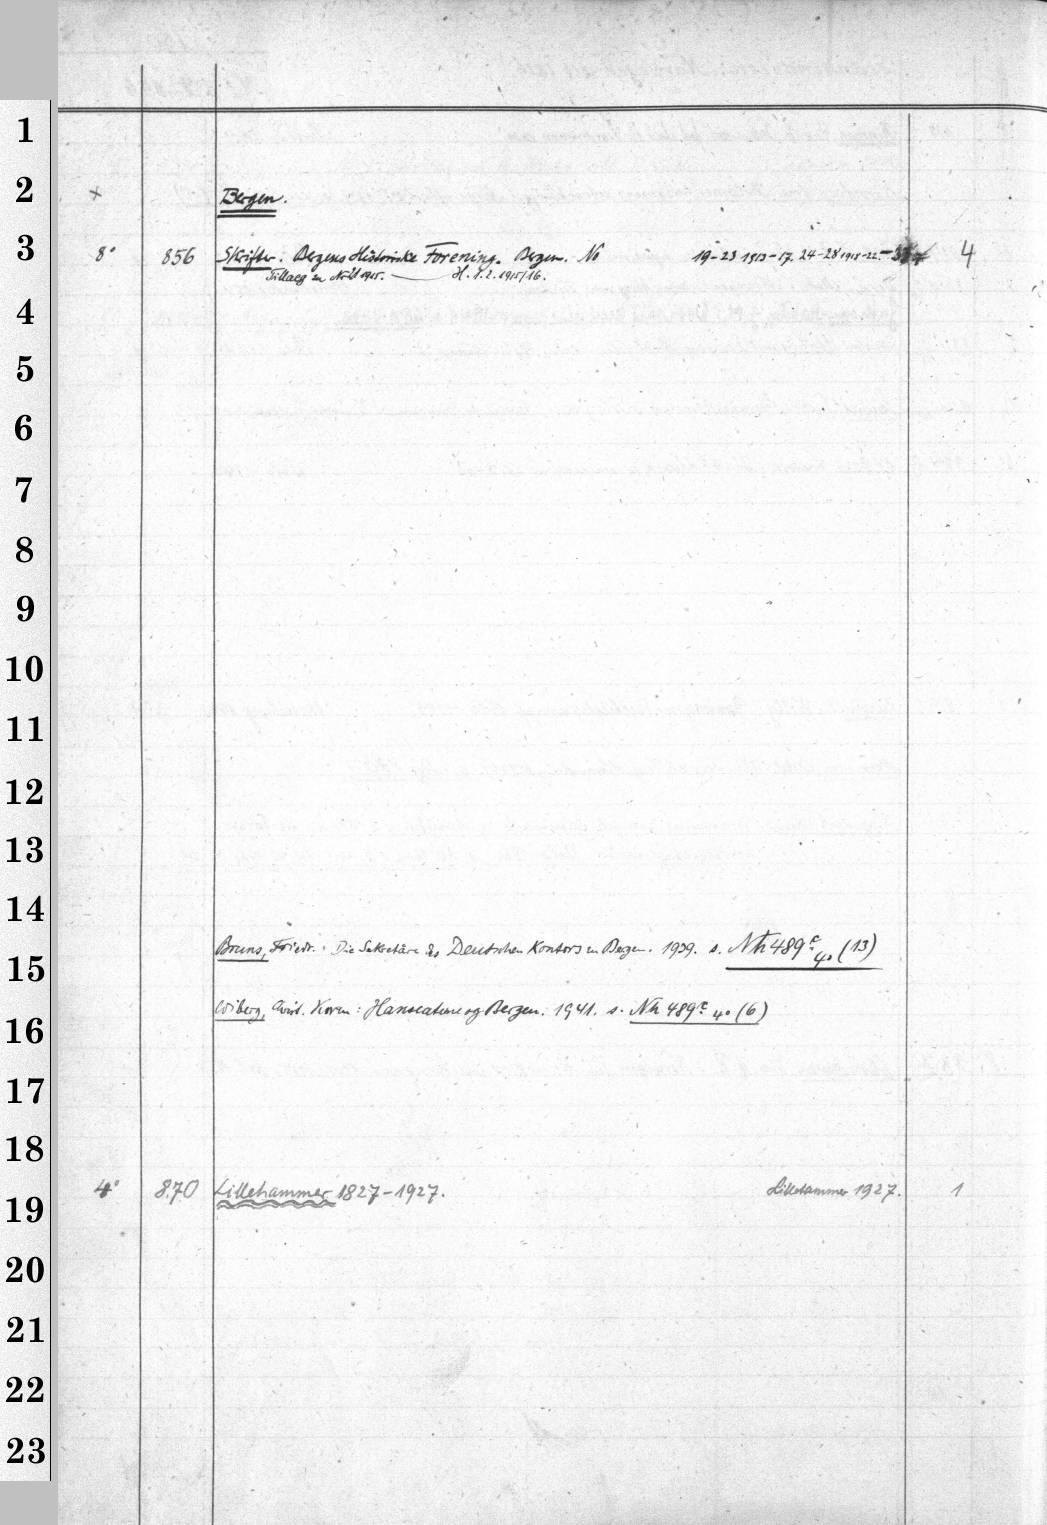 1
2 × Bergen.
3 8° 856 Skrifter: Bergens Historiske Forening. Bergen. No 19-23 1913-17. 24-28 1918-22. 4
Tillaeg zu No 21 1915. H. 1.2. 1915/16.
4
5
6
7
8
9
10
11
12
13
14
15 Bruns, Friedr.: Die Sekretäre des Deutschen Kontors zu Bergen. 1939. s. Nh 489c 4° (13)
16 Wiberg, Christ. Koren: Hanseaterne og Bergen. 1941. s. Nh 489c 4° (6)
17
18
19 4° 870 Lillehammer 1827-1927. Lillehammer 1927. 1
20
21
22
23